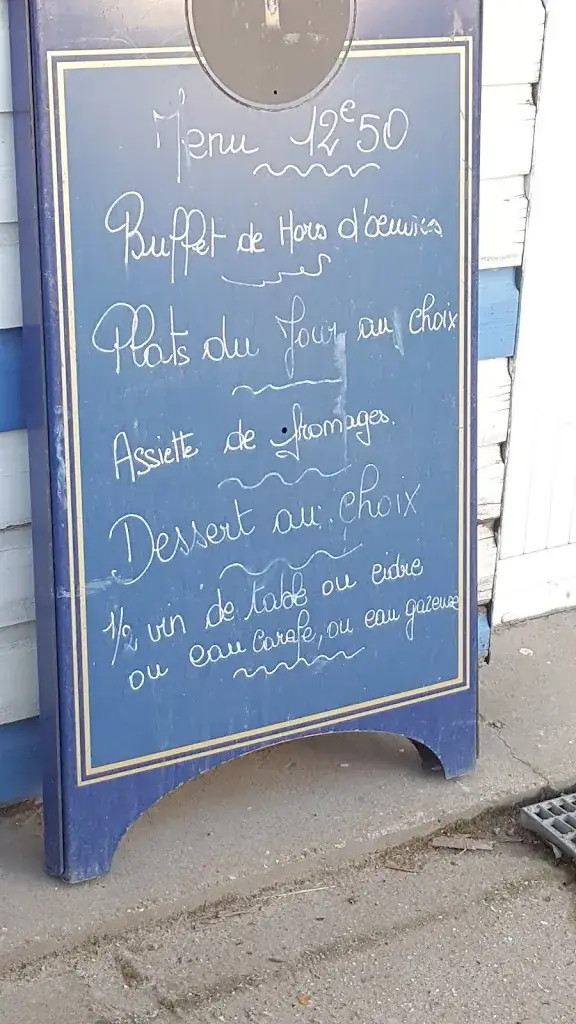 Menu 12€50
Buffet de Hors d'oeuvres
Plats du Jour au choix
Assiette de fromages.
Dessert au choix
1/2 vin de table ou cidre
ou eau carafe, ou eau gazeuse